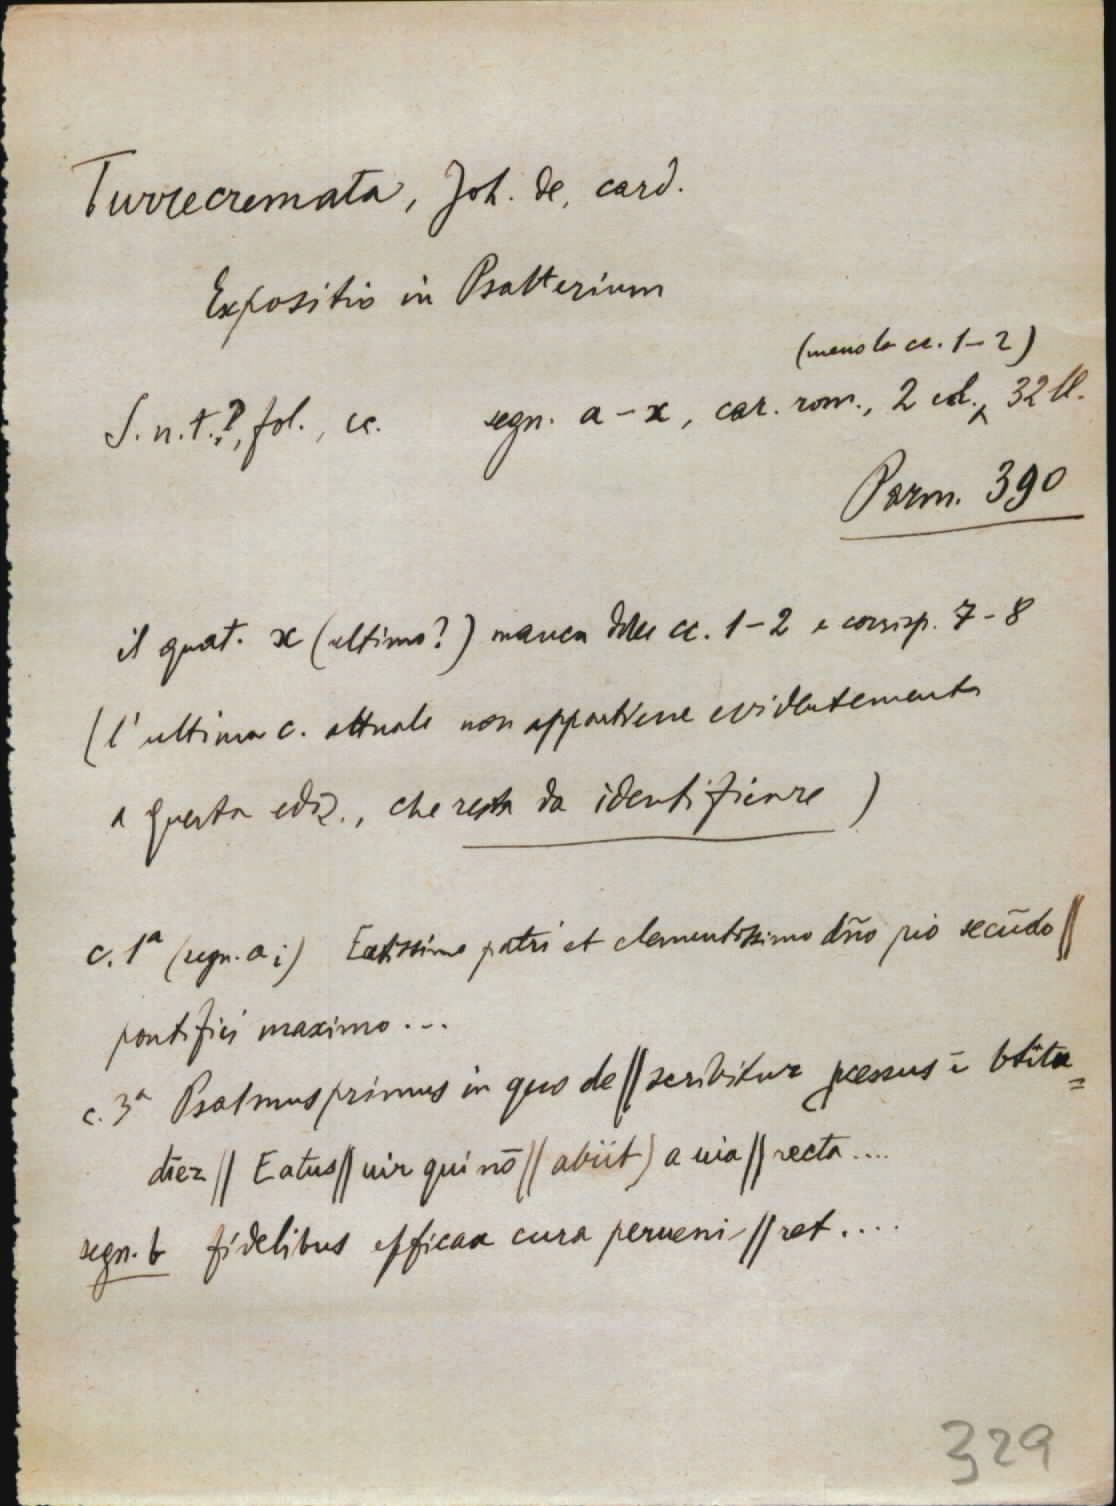 Turrecremata, Joh. de, card.
Expositio in Psalterium
(meno le cc. 1-2)
S.n.t.?, fol., cc. segn. a-x, car. rom., 2 col., 32 ll.
Parm. 390
il quat. x (ultimo?) manca delle cc. 1-2 e corrisp. 7-8
(l'ultima c. attuale non appartiene evidentemente
a questa ediz., che resta da identificare)
c. 1ª (segn. a i) Eatissimo patri et clementissimo dño pio secūdo ||
pontifici maximo...
c. 3ª Psalmus primus in quo de || scribitur pcessus ī btitu=
diez || Eatus || uir qui nō || abiit) a uia || recta....
segn. b fidelibus efficax cura perueni- || ret....
329